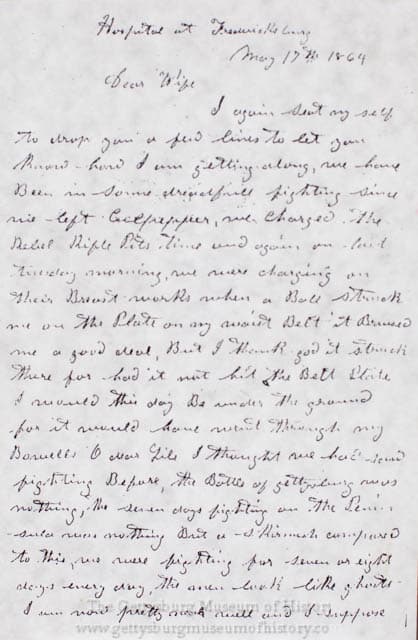 Hospital at Fredericksburg
May 17th 1864
Dear Wife
I again seat my self
to drop you a few lines to let you
know how I am getting along, we have
Been in some dreadfull fighting since
we left Culpepper, we Charged the
Rebel Rifle Pits time and again on last
tuesday morning, we were charging on
their Breast works when a Ball struck
me on the Plate on my waist Belt it Bruised
me a good deal, But I thank god it struck
there for had it not hit the Belt Plate
I would this day Be under the ground
for it would have went through my
Bowells O dear I thought we had seen
fighting Before, the Battle of gettysburg was
nothing, the seven days fighting on the Penin
sula was nothing But a skirmish compared
to this, we were fighting for seven or eight
days every day, the men look like ghosts
I am now pretty and I suppose
The Gettysburg Museum of History
www.gettysburgmuseumofhistory.com